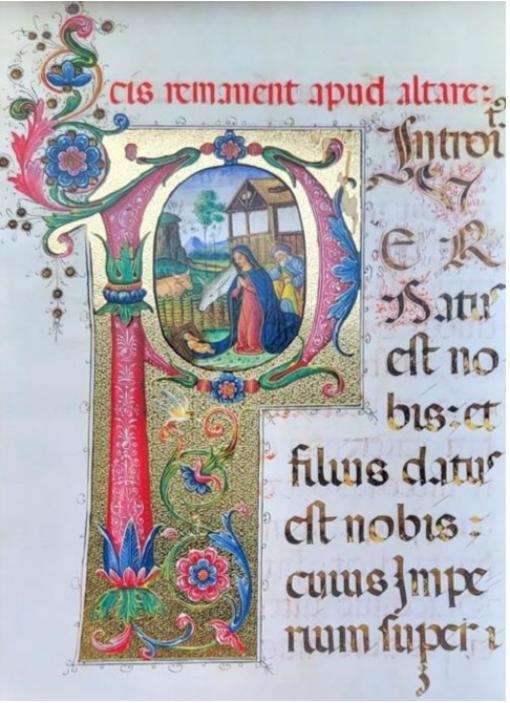 cis remanent apud altare:
Introi
t.
P
ER
Natus
est no
bis: et
filius datus
est nobis:
cuius Impe
rium super